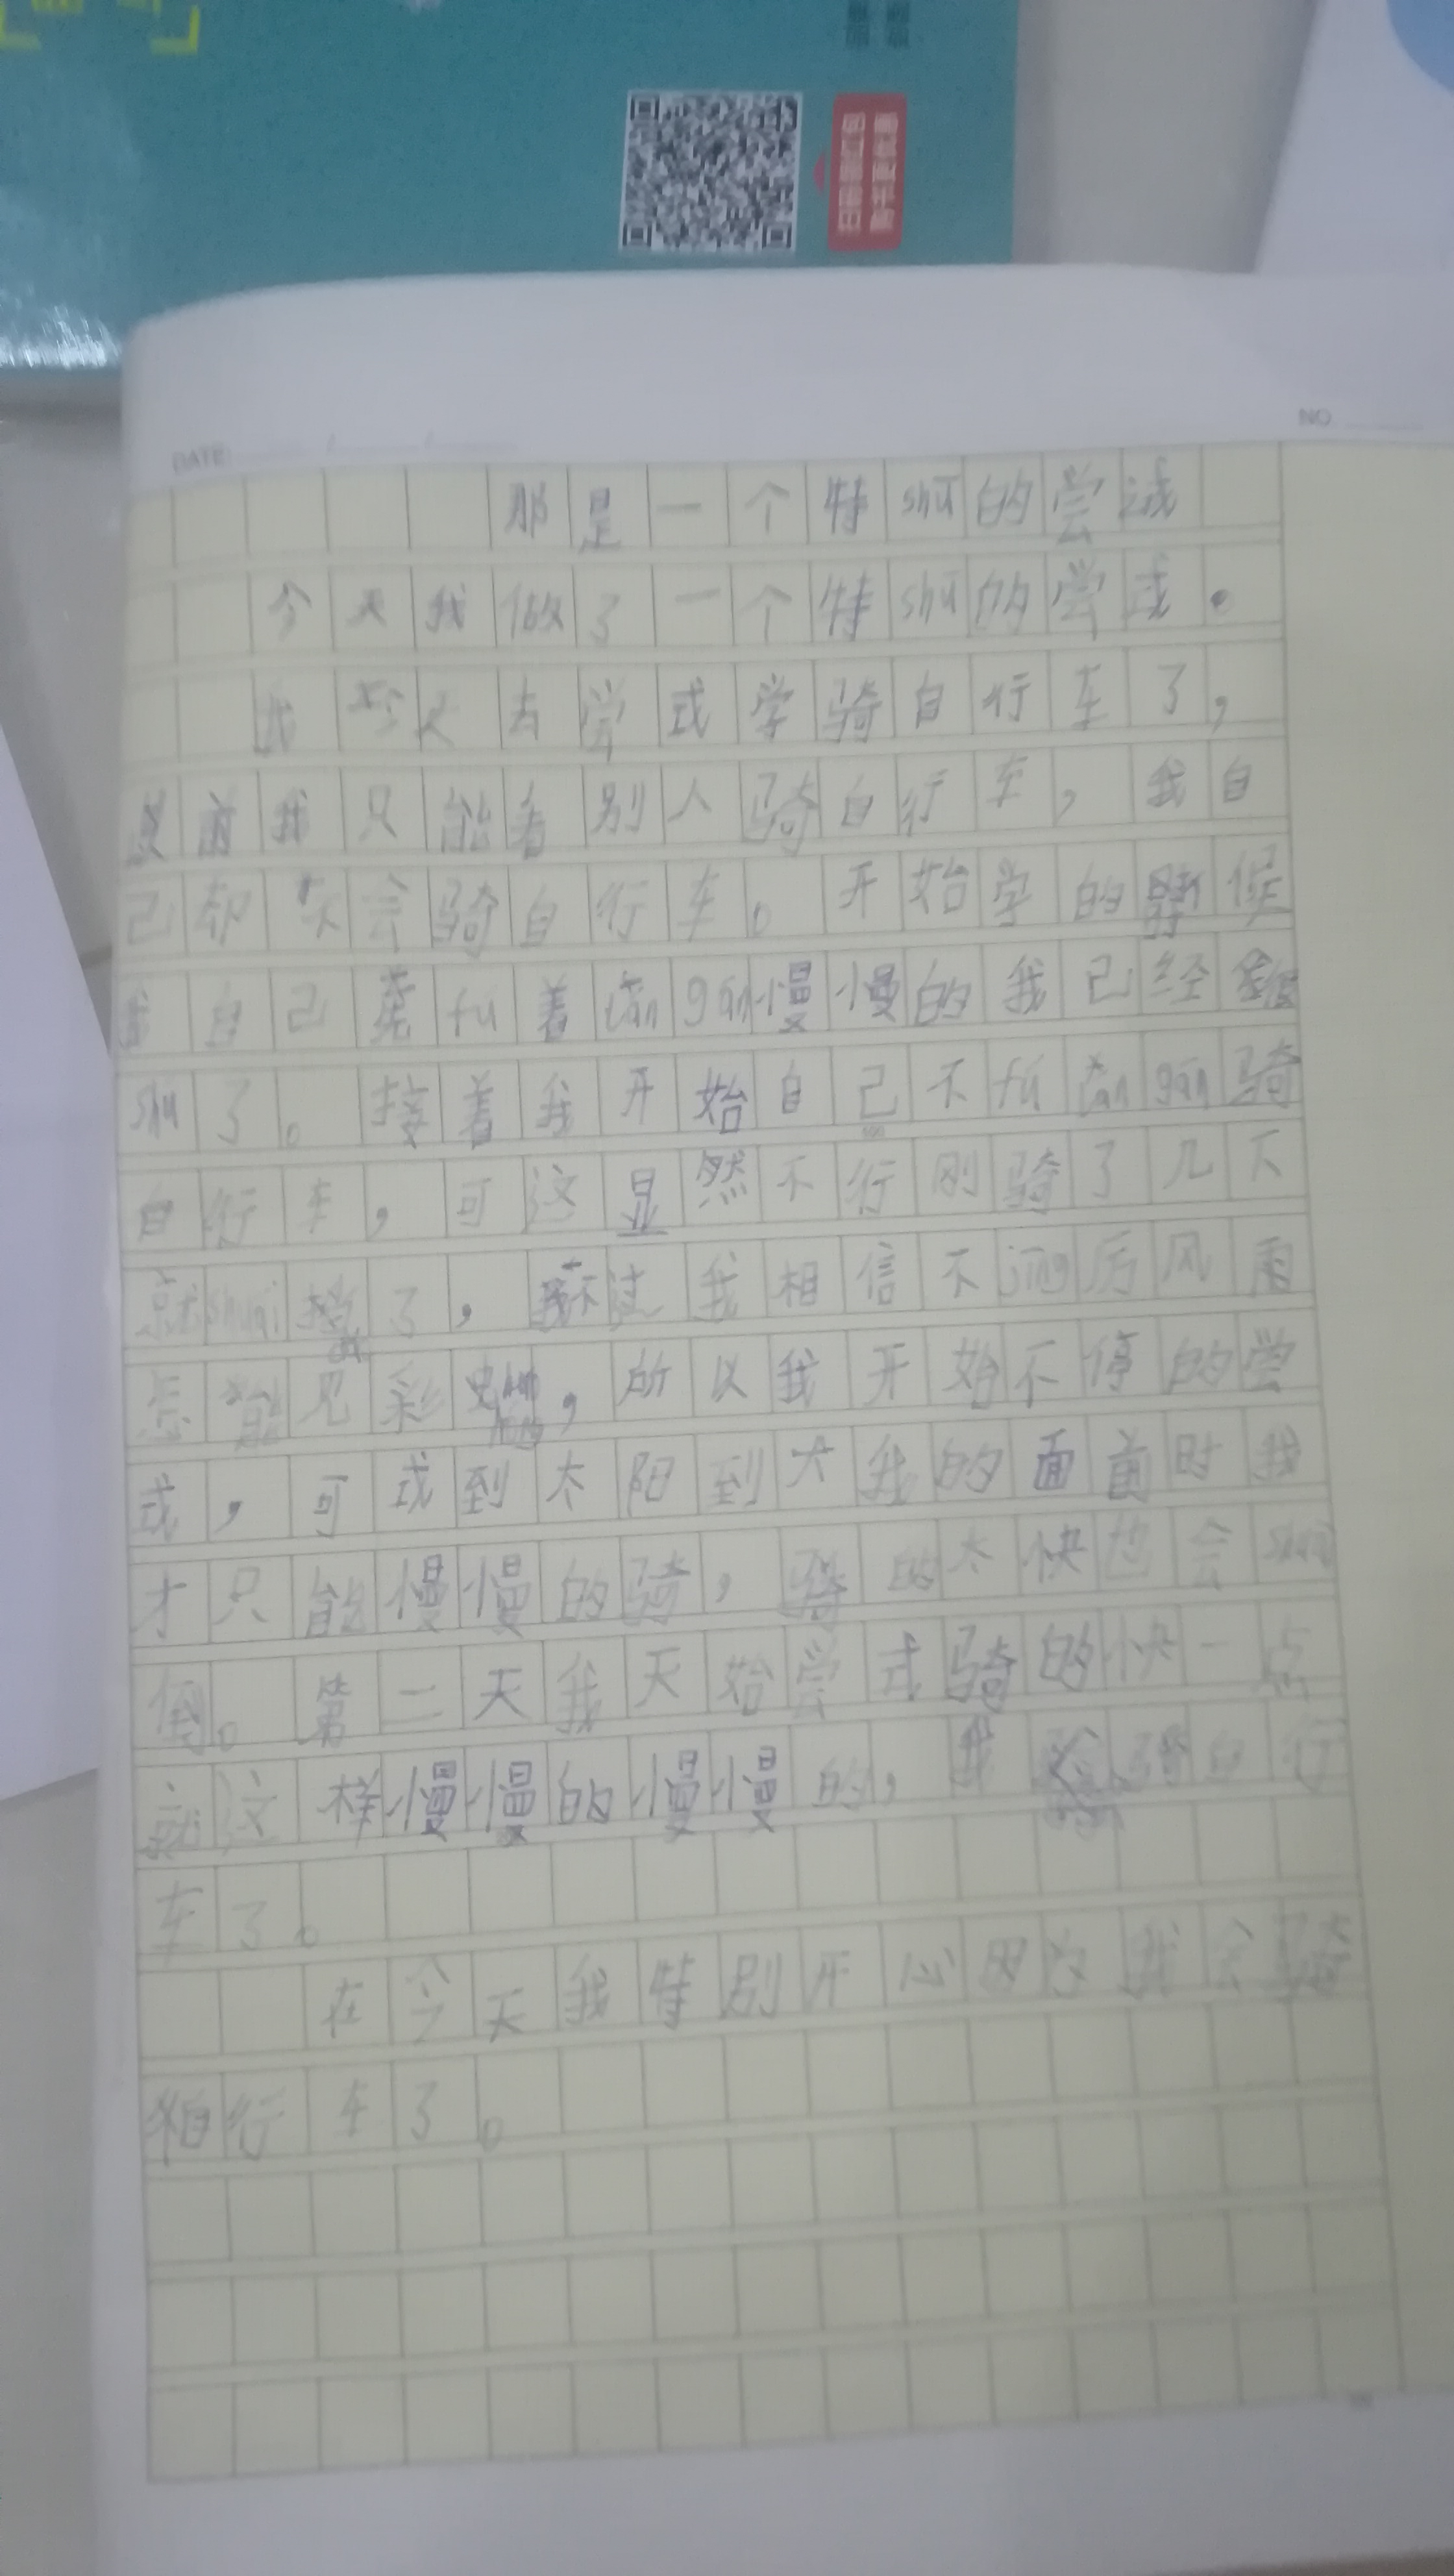 DATE
NO
那是一个特shū的尝试
今天我做了一个特shū的尝式。
我今天去尝式学骑自行车了,
前我只能看别人骑自行车,我自
己却不会骑自行车。开始学的时候
我自己 fú着 gān慢慢的我己经
shu了。接着我开始自己不fú gān骑
自行车,可这显然不行刚骑了几下
就shuāi 了,不过我相信不jīng历风雨
怎能见彩,所以我开始不停的尝
式,可 到太阳到 我的面前时我
才只能慢慢的骑,骑的太快也会shuāi
倒。第二天我天始尝式骑的快一点
就这样慢慢的慢慢的,我 骑自行
车了。
在今天我特别开心因为我会骑
自行车了。